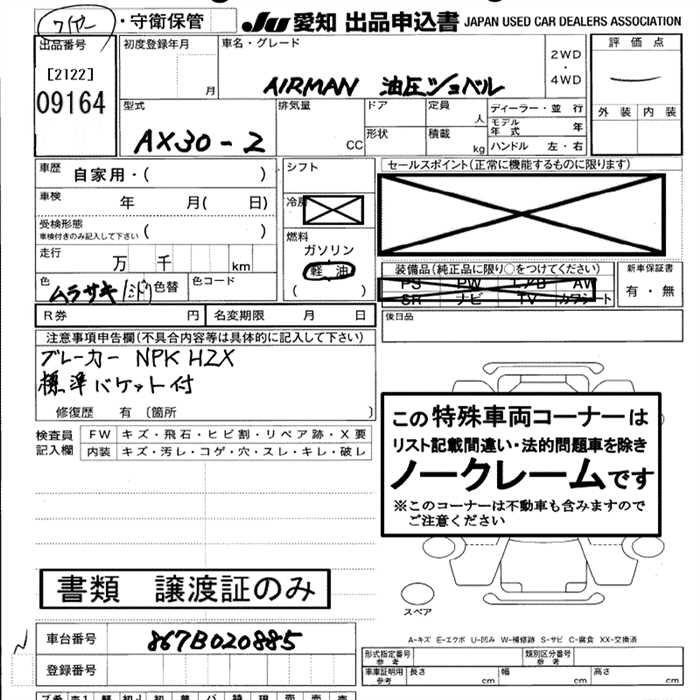 ワイヤー ・守衛保管 JU 愛知 出品申込書 JAPAN USED CAR DEALERS ASSOCIATION
出品番号 初度登録年月 車名・グレード 2WD 評価点
[2122] 月 AIRMAN 油圧ショベル ・ 4WD
09164 型式 排気量 ドア 定員 ディーラー・並 行 外装 内装
AX30-2 CC 形状 人 モデル年式 年
積載 kg ハンドル 左・右
車歴 自家用・( ) シフト セールスポイント(正常に機能するものに限ります)
車検 年 月( 日) 冷房
受検形態 ( )
車検付きのみ記入して下さい
燃料
走行 万 千 km ガソリン 装備品(純正品に限り○をつけてください) 新車保証書
軽油 PS PW エアB AW 有・無
色 ムラサキ/ミドリ 色替 色コード ( ) SR ナビ TV カワシート
R券 円 名変期限 月 日 後日品
注意事項申告欄(不具合内容等は具体的に記入して下さい)
ブレーカー NPK H2X
標準バケット付
修復歴 有 〔箇所 〕
検査員記入欄 FW キズ・飛石・ヒビ割・リペア跡・X要
内装 キズ・汚レ・コゲ・穴・スレ・キレ・破レ
この特殊車両コーナーは
リスト記載間違い・法的問題車を除き
ノークレームです
※このコーナーは不動車も含みますので
ご注意ください
書類 譲渡証のみ
スペア
A-キズ E-エクボ U-凹み W-補修跡 S-サビ C-腐食 XX-交換済
車台番号 867B020885 形式指定番号 参考 類別区分番号 参考
登録番号 車庫証明用 参考 長さ cm 幅 cm 高さ cm